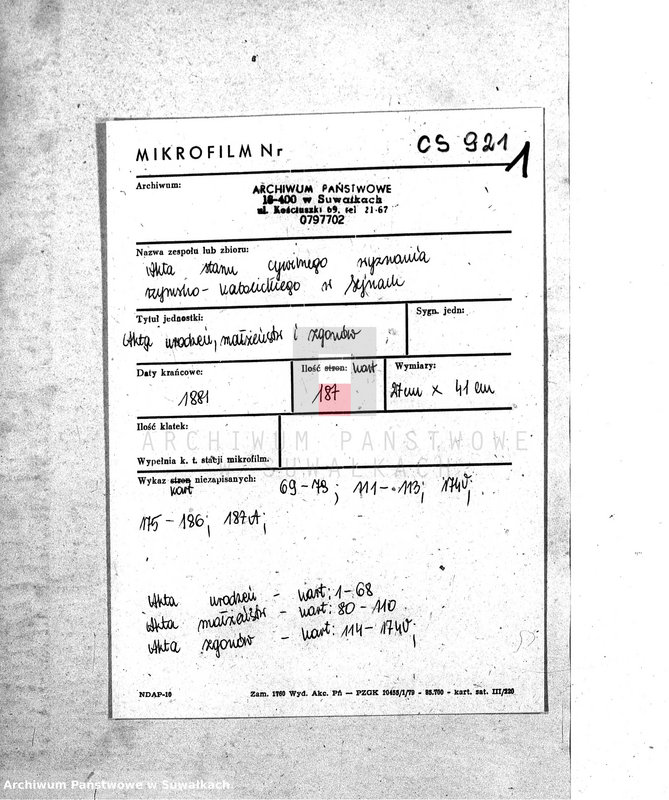 MIKROFILM Nr CS 921
1
Archiwum:
ARCHIWUM PAŃSTWOWE
16-400 w Suwałkach
ul. Kościuszki 69, tel 21-67
0797702
Nazwa zespołu lub zbioru:
Akta stanu cywilnego wyznania
rzymsko-katolickiego w Sejnach
Tytuł jednostki:
Sygn. jedn:
Akta urodzeń, małżeństw i zgonów
Daty krańcowe:
1881
Ilość stron: kart
187
Wymiary:
27cm x 41 cm
Ilość klatek:
Wypełnia k. t. stacji mikrofilm.
ARCHIWUM PAŃSTWOWE
W SUWAŁKACH
Wykaz stron niezapisanych:
kart
69-79; 111-113; 174v;
175-186; 187A;
Akta urodzeń - kart: 1-68
Akta małżeństw - kart: 80-110
Akta zgonów - kart: 114-174v;
NDAP-10
Zam. 1760 Wyd. Akc. Pń — PZGK 10455/1/79 - 85.700 - kart. sat. III/220
Archiwum Państwowe w Suwałkach